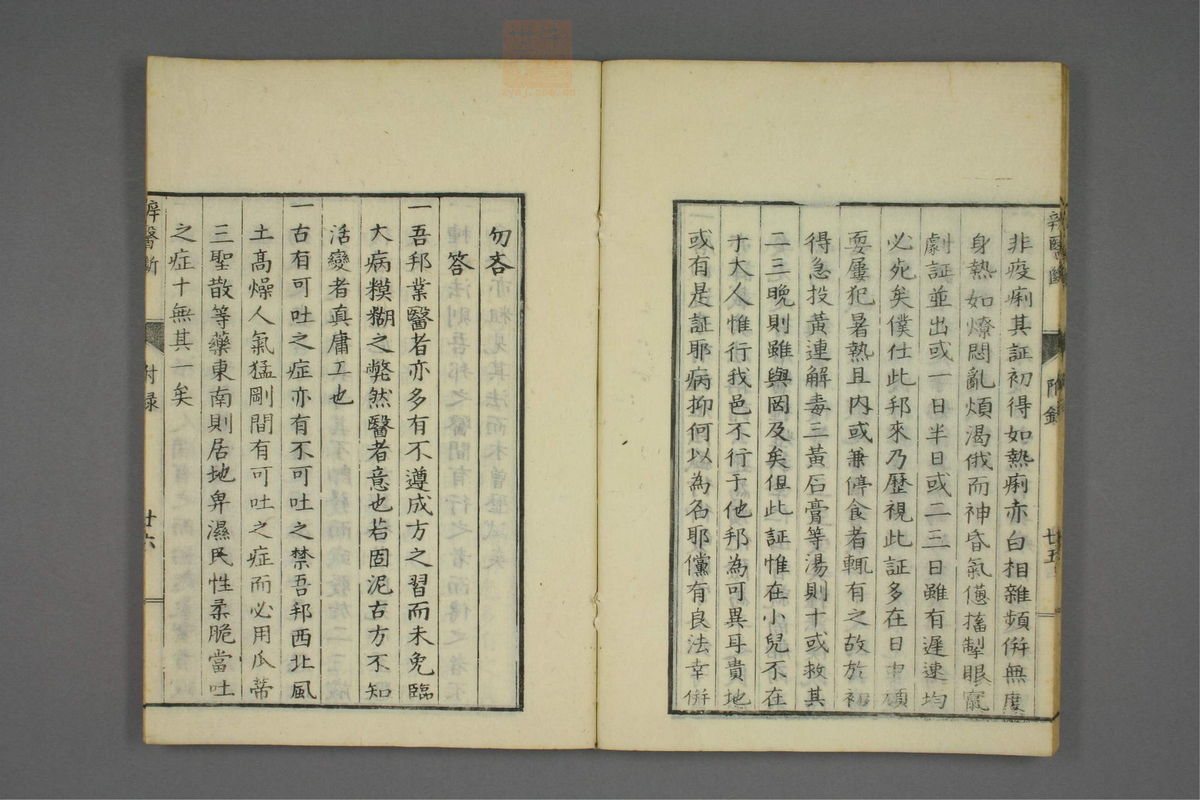 非疫痢其証初得如熱痢赤白相雜頻併無度
身熱如燎悶亂煩渴俄而神昏氣憊搐掣眼竄
劇証並出或一日半日或二三日雖有遲速均
必死矣僕仕此邦來乃歷視此証多在日中頑
耍屢犯暑熱且内或兼停食者輒有之故於初
得急投黃連解毒三黃石膏等湯則十或救其
二三晚則雖與罔及矣但此証惟在小兒不在
于大人惟行我邑不行于他邦為可異耳貴地
或有是証耶病抑何以為名耶儻有良法幸併
辨醫斷
附錄
廿五
勿吝
答
一吾邦業醫者亦多有不遵成方之習而未免臨
大病糢糊之弊然醫者意也若固泥古方不知
活變者真庸工也
一古有可吐之症亦有不可吐之禁吾邦西北風
土高燥人氣猛剛間有可吐之症而必用瓜蒂
三聖散等藥東南則居地卑濕民性柔脆當吐
之症十無其一矣
辨醫斷
附錄
廿六